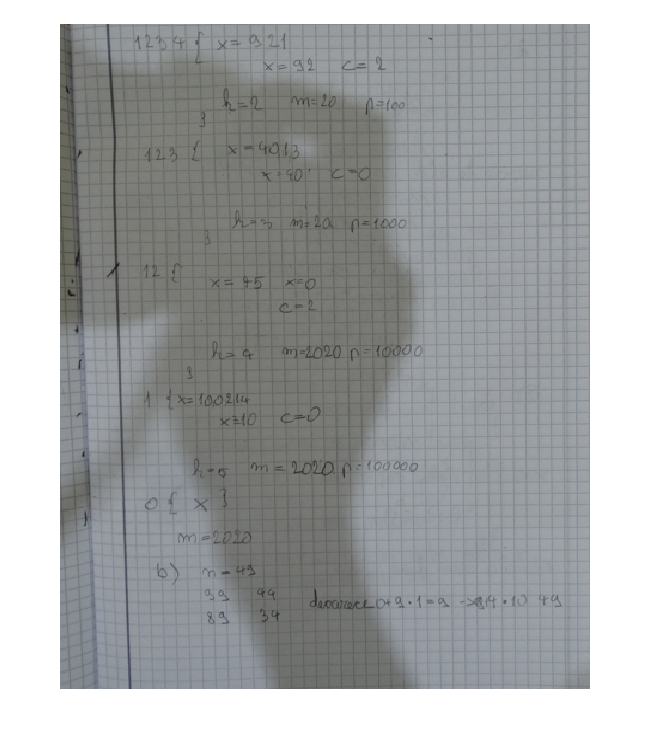 1234 { x = 921
x = 92 c = 2
k = 2 m = 20 p = 100
}
123 { x = 4013
x = 40 c = 0
k = 3 m = 20 p = 1000
}
12 {
x = 45 x = 0
c = 2
k = 4 m = 2020 p = 10000
}
1 { x = 100214
x = 10 c = 0
k = 5 m = 2020 p = 100000
0 { x }
m = 2020
b) n = 49
99 44
89 34 deoarece 0+9·1=9 4·10 49